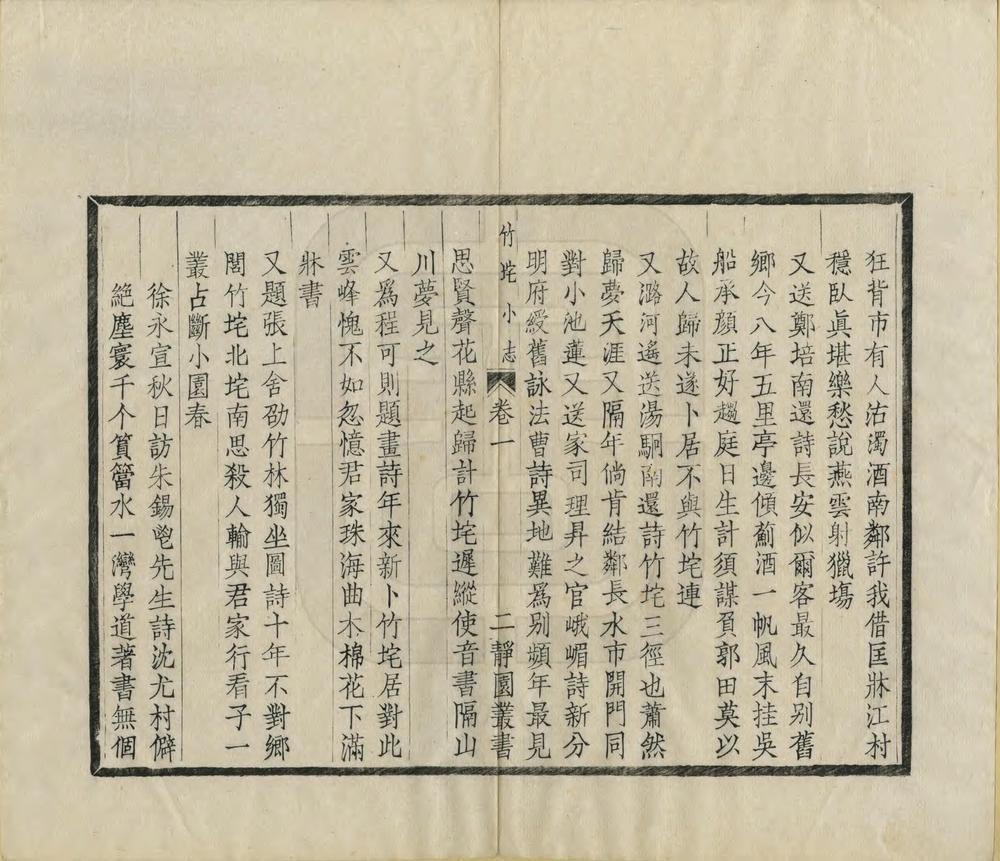 狂背市有人沽濁酒南鄰許我借匡牀江村
穩臥眞堪樂愁說燕雲射獵塲
又送鄭培南還詩長安似爾客最久自别舊
鄉今八年五里亭邊傾薊酒一帆風末挂吳
船承顔正好趨庭日生計須謀負郭田莫以
故人歸未遂卜居不與竹垞連
又潞河遙送湯駉南還詩竹垞三徑也蕭然
歸夢天涯又隔年倘肯結鄰長水市開門同
對小池蓮又送家司理昇之官峨嵋詩新分
明府綬舊詠法曹詩異地難爲别頻年最見
竹垞小志 卷一 二 靜園叢書
思賢聲花縣起歸計竹垞遲縱使音書隔山
川夢見之
又爲程可則題畫詩年來新卜竹垞居對此
雲峰愧不如忽憶君家珠海曲木棉花下滿
牀書
又題張上舍劭竹林獨坐圖詩十年不對鄉
閭竹垞北垞南思殺人輸與君家行看子一
叢占斷小園春
徐永宣秋日訪朱錫鬯先生詩沈尤村僻
絶塵寰千个篔簹水一灣學道著書無個